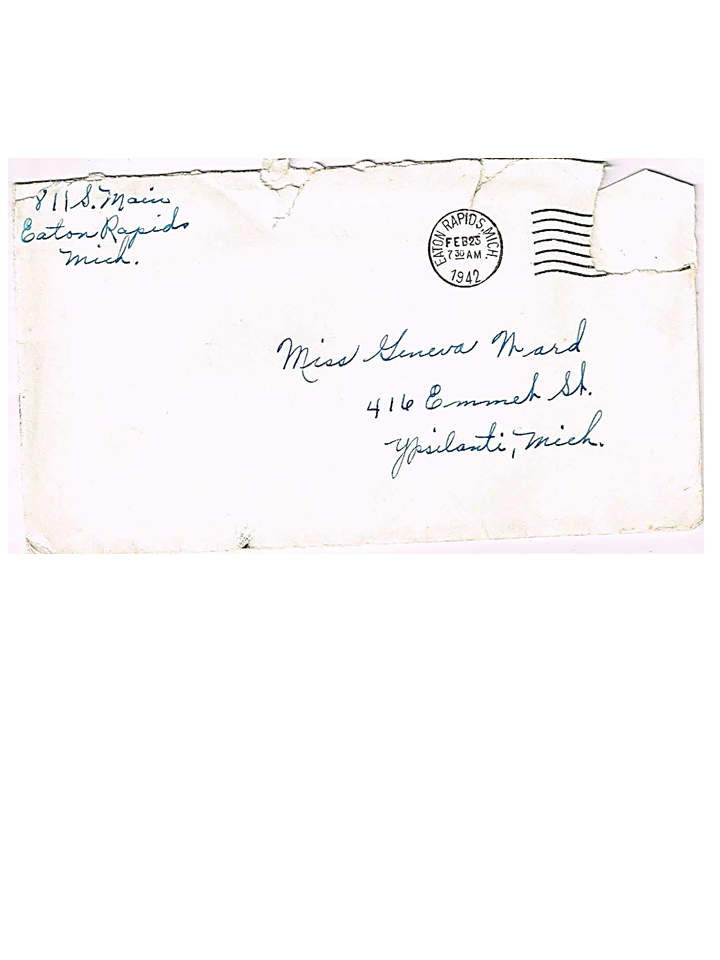 811 S. Main
Eaton Rapids
Mich.
EATON RAPIDS, MICH.
FEB 23
7 30 AM
1942
Miss Geneva Ward
416 Emmet St.
Ypsilanti, Mich.